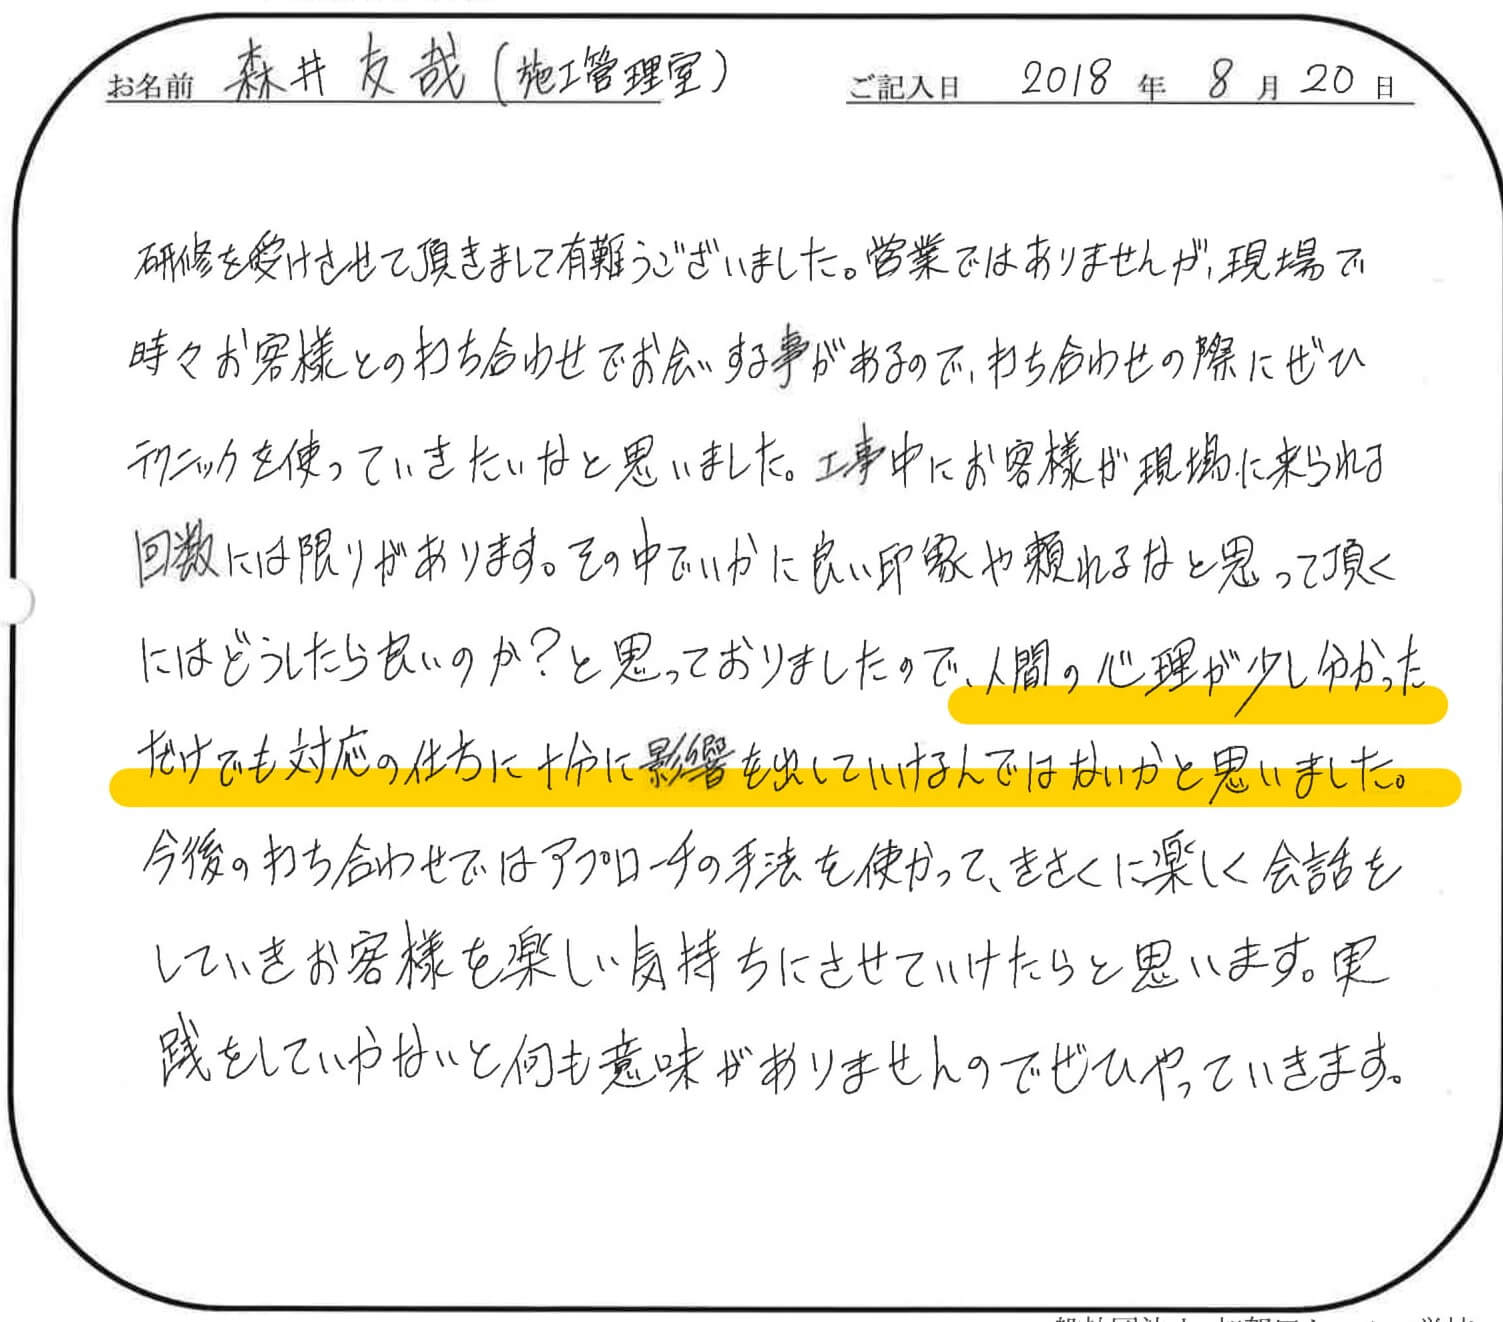 お名前 森井 友哉 (施工管理室) ご記入日 2018 年 8 月 20 日
研修を受けさせて頂きまして有難うございました。営業ではありませんが、現場で
時々お客様との打ち合わせでお会いする事があるので、打ち合わせの際にぜひ
テクニックを使っていきたいなと思いました。工事中にお客様が現場に来られる
回数には限りがあります。その中でいかに良い印象や頼れるなと思って頂く
にはどうしたら良いのか?と思っておりましたので、人間の心理が少し分かった
だけでも対応の仕方に十分に影響を出していけるんではないかと思いました。
今後の打ち合わせではアプローチの手法を使かって、きさくに楽しく会話を
していきお客様を楽しい気持ちにさせていけたらと思います。実
践をしていかないと何も意味がありませんのでぜひやっていきます。